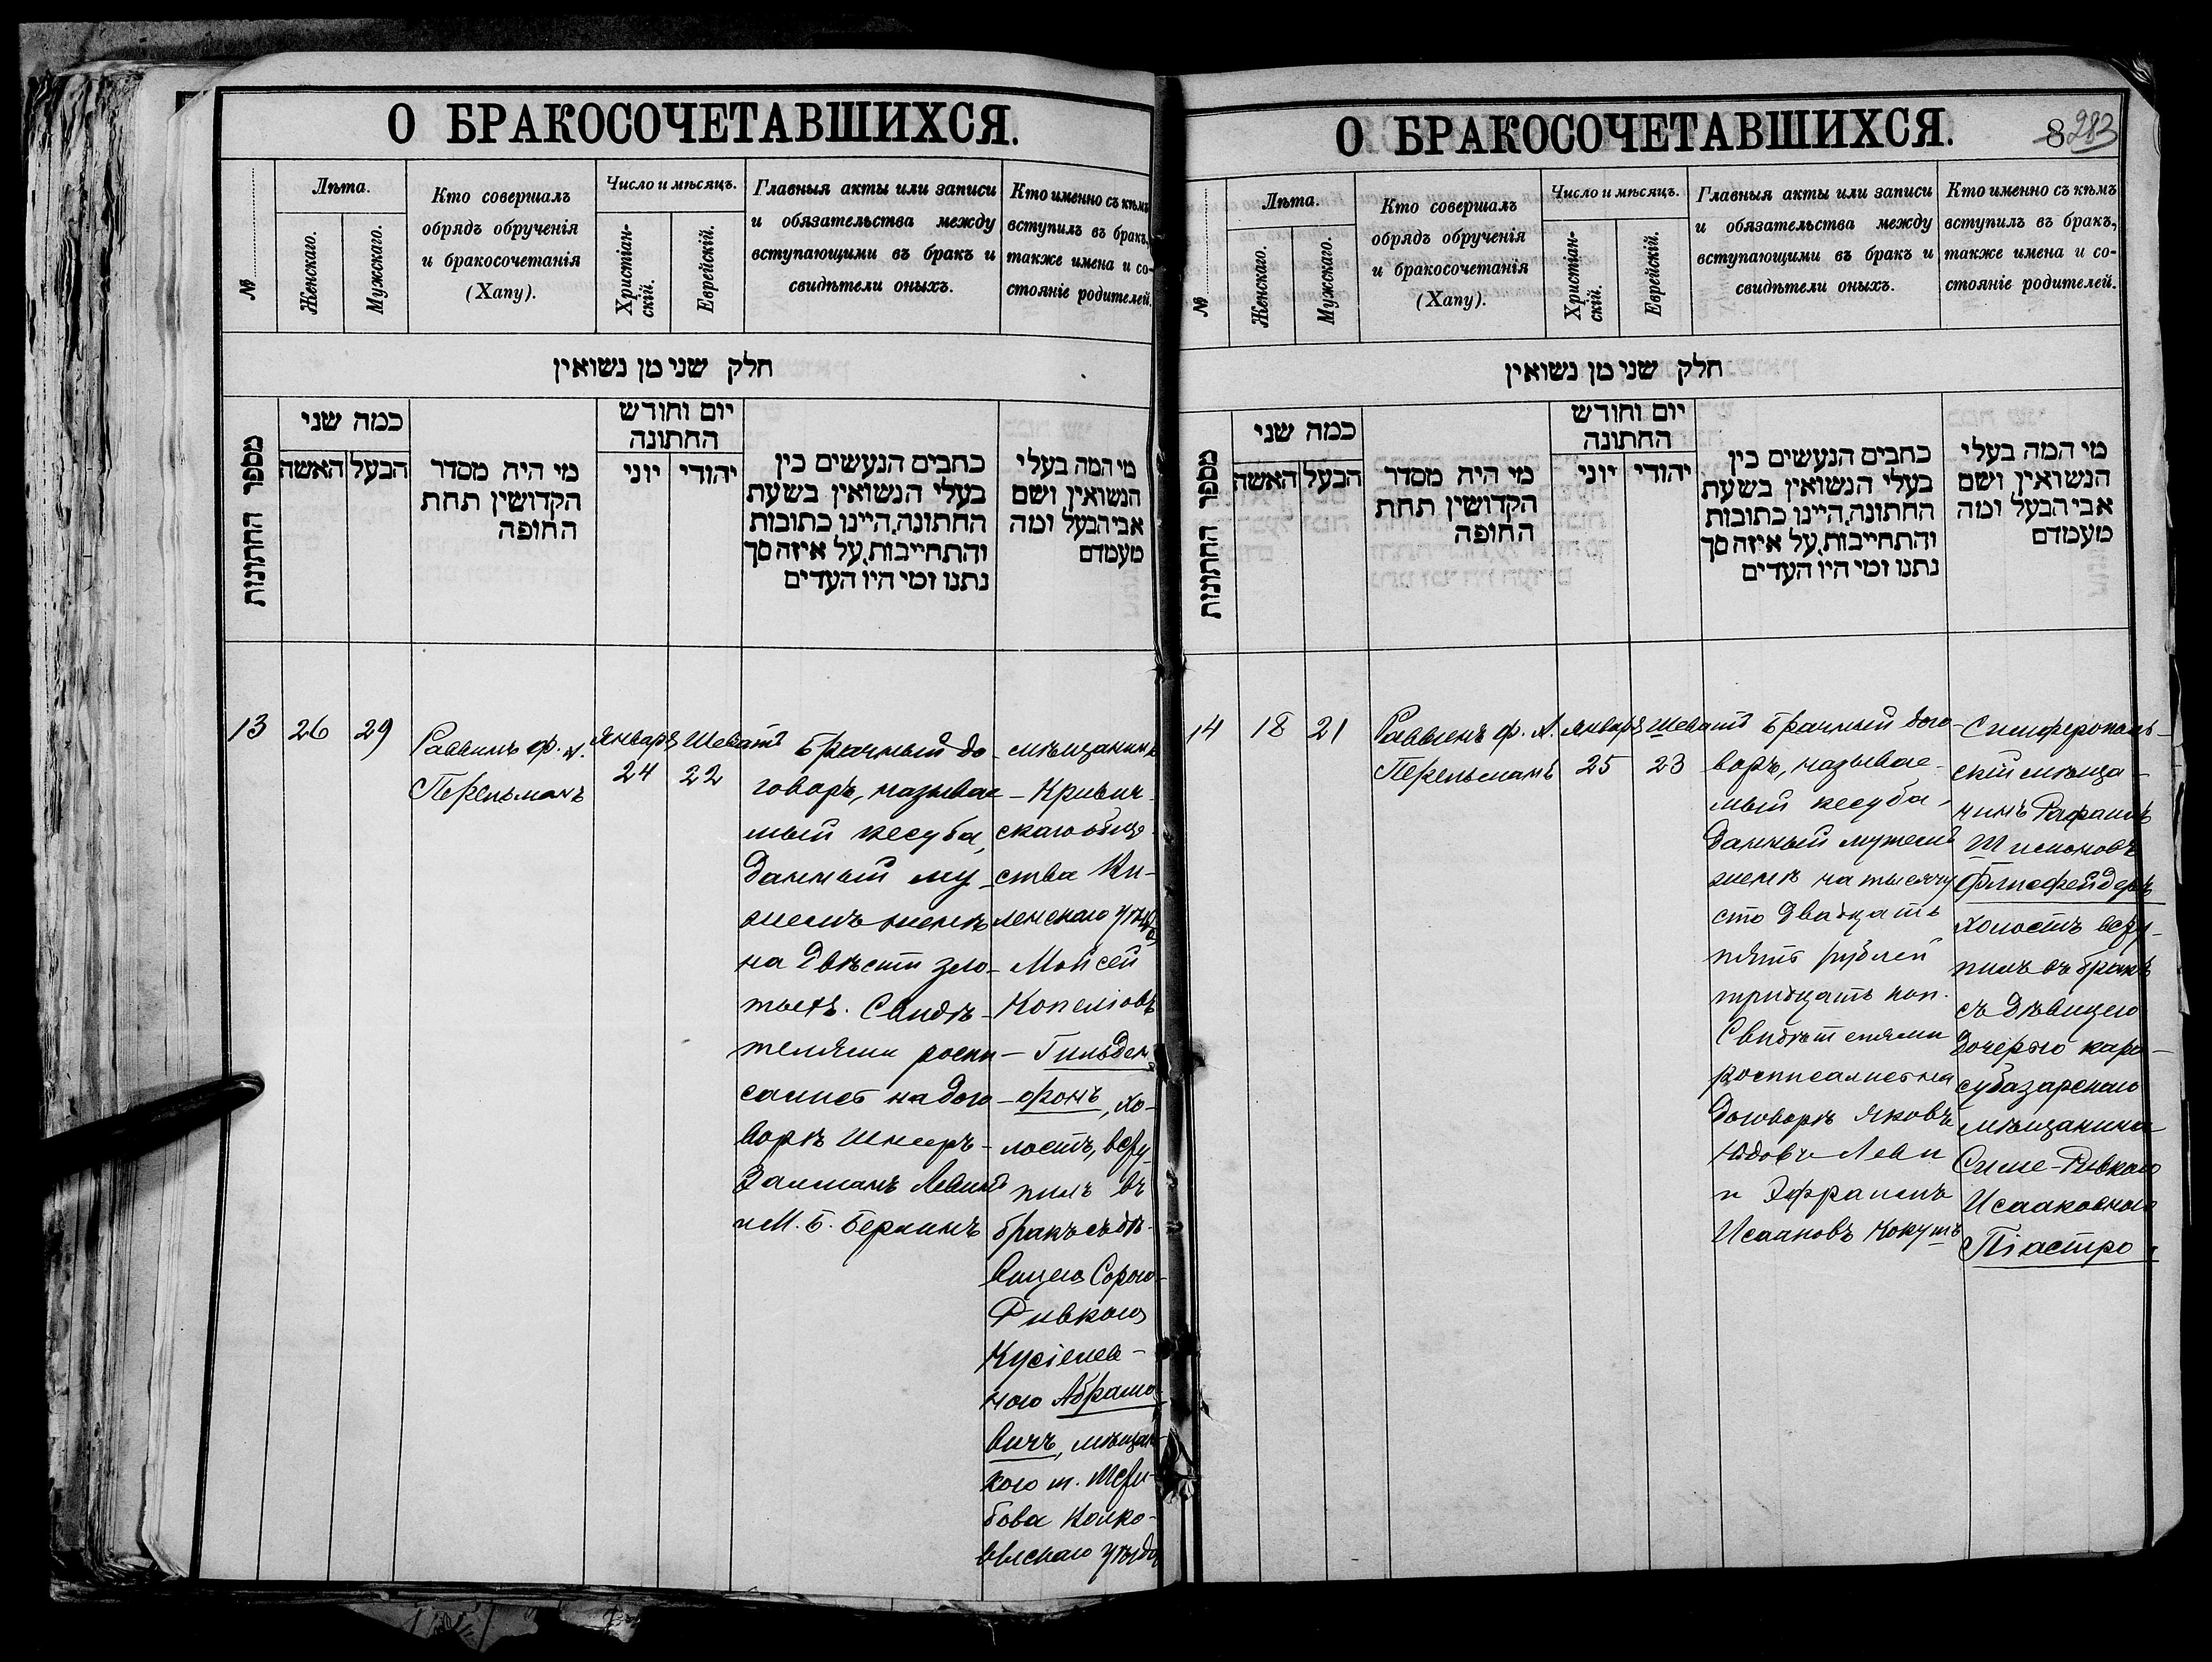 О БРАКОСОЧЕТАВШИХСЯ.
№
Лѣта.
Женскаго.
Мужскаго.
Кто совершалъ
обрядъ обрученія
и бракосочетанія
(Хапу).
Число и мѣсяцъ.
Христіан-
скій.
Еврейскій.
Главныя акты или записи
и обязательства между
вступающими въ бракъ и
свидѣтели оныхъ.
Кто именно съ кѣмъ
вступилъ въ бракъ,
также имена и со-
стояніе родителей.
חלק שני מן נשואין
מספר החתונות
כמה שני
האשה
הבעל
מי היה מסדר
הקדושין תחת
החופה
יום וחודש
החתונה
יוני
יהודי
כתבים הנעשים בין
בעלי הנשואין בשעת
החתונה, היינו כתובות
והתחייבות, על איזה סך
נתנו ומי היו העדים
מי המה בעלי
הנשואין ושם
אבי הבעל ומה
מעמדם
13
26
29
Раввинъ Ф. А.
Перельманъ
Январь
24
Шеватъ
22
Брачный до-
говоръ, называе-
мый кесуба,
данный му-
жемъ женѣ
на двѣсти зло-
тыхъ. Свидѣ-
телями роспи-
сались на дого-
ворѣ Шнееръ-
Залманъ Левинъ
и М. Б. Берлинъ
мѣщанинъ
Кривич-
скаго обще-
ства Ви-
ленскаго уѣзда
Мойсей
Копеліовъ
Гильден-
фонъ, хо-
лостъ, всту-
пилъ въ
бракъ съ дѣ-
вицею Сорою-
Ривкою
Кусіелев-
ною Абрамо-
вичъ, мѣщан-
кою м.
уѣзда
О БРАКОСОЧЕТАВШИХСЯ.
8 283
№
Лѣта.
Женскаго.
Мужскаго.
Кто совершалъ
обрядъ обрученія
и бракосочетанія
(Хапу).
Число и мѣсяцъ.
Христіан-
скій.
Еврейскій.
Главныя акты или записи
и обязательства между
вступающими въ бракъ и
свидѣтели оныхъ.
Кто именно съ кѣмъ
вступилъ въ бракъ,
также имена и со-
стояніе родителей.
חלק שני מן נשואין
מספר החתונות
כמה שני
האשה
הבעל
מי היה מסדר
הקדושין תחת
החופה
יום וחודש
החתונה
יוני
יהודי
כתבים הנעשים בין
בעלי הנשואין בשעת
החתונה, היינו כתובות
והתחייבות, על איזה סך
נתנו ומי היו העדים
מי המה בעלי
הנשואין ושם
אבי הבעל ומה
מעמדם
14
18
21
Раввинъ Ф. А.
Перельманъ
Январь
25
Шеватъ
23
Брачный дого-
воръ, называе-
мый кесуба,
данный мужемъ
женѣ на тысячу
сто двадцать
пять рублей
тридцать коп.
Свидѣтелями
росписались на
договорѣ Яковъ
Юдовъ Леви
и Эфраимъ
Исааковъ Кокушъ
Симферополь-
скій мѣща-
нинъ Рафаилъ
Шимоновъ
Флисфейдеръ
холостъ всту-
пилъ въ бракъ
съ дѣвицею
дочерью кара-
субазарскаго
мѣщанина
Симе-Ривкою
Исааковною
Піастро.